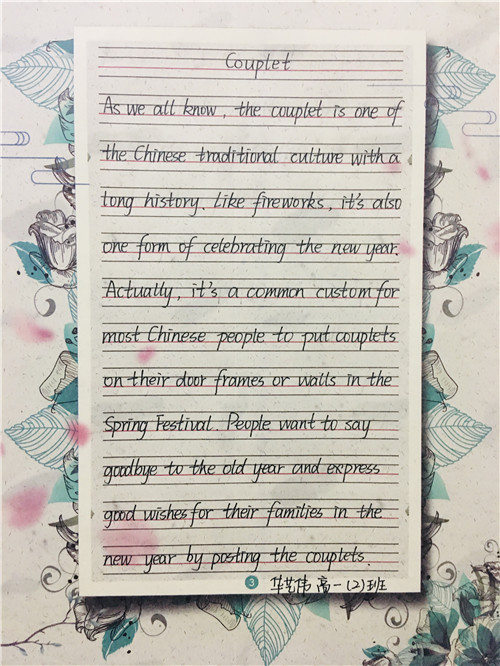 Couplet
As we all know, the couplet is one of
the Chinese traditional culture with a
long history. Like fireworks, it's also
one form of celebrating the new year.
Actually, it's a common custom for
most Chinese people to put couplets
on their door frames or walls in the
Spring Festival. People want to say
goodbye to the old year and express
good wishes for their families in the
new year by posting the couplets.
3 高一(2)班